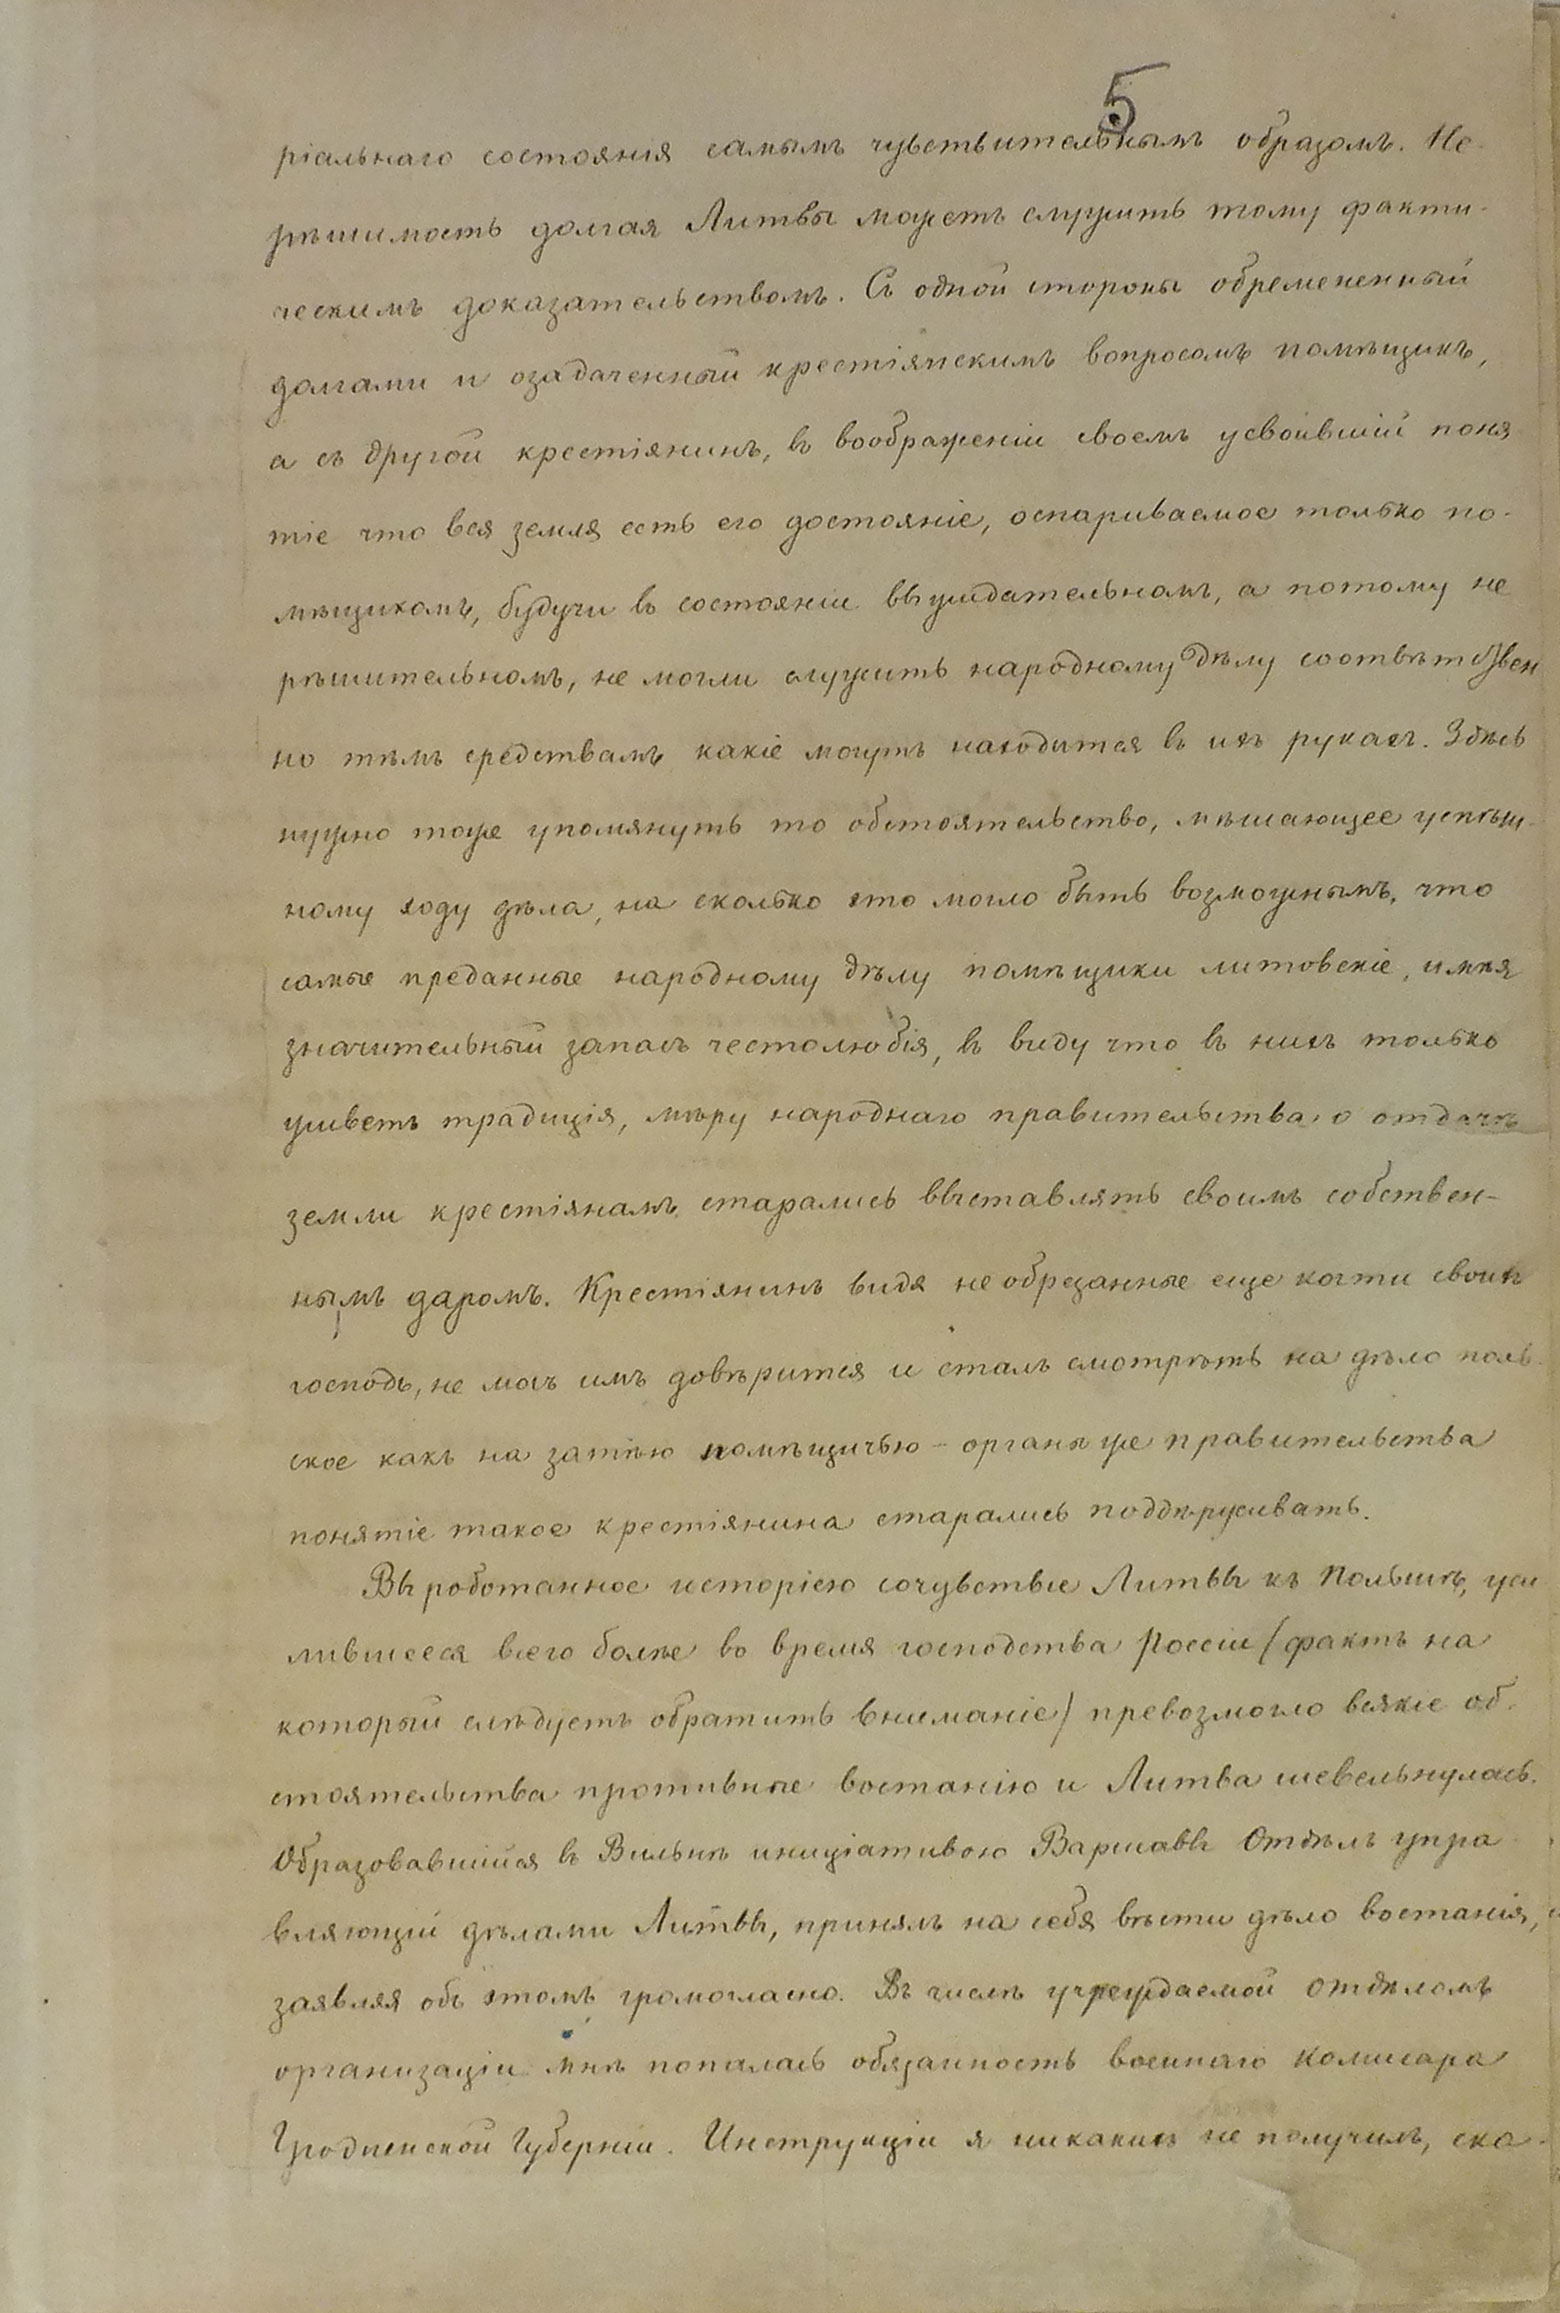 5
ріальнаго состоянія самымъ чувствительнымъ образомъ. Не-
рѣшимость долгая Литвы можетъ служить тому факти-
ческимъ доказательствомъ. Съ одной стороны обремененный
долгами и озадаченный крестіянскимъ вопросомъ помѣщикъ,
а съ другой крестіянинъ, въ воображеніи своемъ усвоившій поня
тіе что вся земля есть его достояніе, оспариваемое только по-
мѣщикомъ, будучи въ состояніи выжидательномъ, а потому не
рѣшительномъ, не могли служить народному дѣлу соотвѣтствен
но тѣмъ средствамъ какіе могутъ находится въ ихъ рукахъ. Здѣсь
нужно тоже упомянуть то обстоятельство, мѣшающее успѣш-
ному ходу дѣла, на сколько это могло быть возможнымъ, что
самые преданные народному дѣлу помѣщики литовскіе, имѣя
значительный запасъ честолюбія, въ виду что въ нихъ только
живетъ традиція, мѣру народнаго правительства о отдачѣ
земли крестіянамъ старались выставлять своимъ собствен-
нымъ даромъ. Крестіянинъ видя не обрезанные еще когти своихъ
господъ, не могъ имъ довѣрится и сталъ смотрѣть на дѣло поль-
ское какъ на затѣю помѣщичью - органы же правительства
понятіе такое крестіянина старались поддѣрживать.
Выроботанное исторіею сочувствіе Литвы къ Польшѣ, уси
лившееся всего болѣе во время господства Россіи /фактъ на
который слѣдуетъ обратить вниманіе/ превозмогло всякіе об-
стоятельства противные востанію и Литва шевельнулась.
Образовавшийся въ Вильнѣ иниціативою Варшавы Отдѣлъ упра-
вляющій дѣлами Литвы, принялъ на себя вѣсти дѣло востанія,
заявляя объ этомъ громогласно. Въ числѣ учреждаемой отдѣломъ
организаціи мнѣ попалась обязанность военнаго комисара
Гродненской Губерніи. Инструкціи я никакихъ не получилъ, ска-